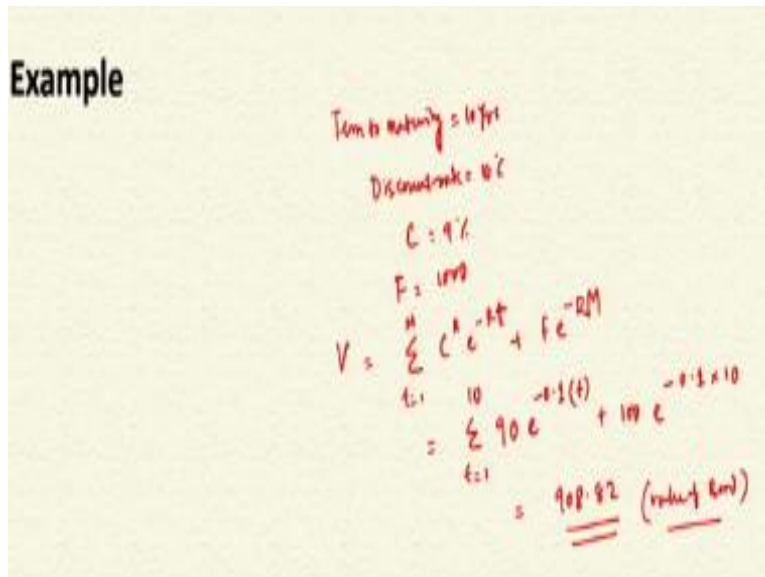 Example
Term to maturity = 10 yrs
Discount rate = 10%
C = 9%
F = 1000
V = M Σ t=1 C^A e^-Rt + F e^-RM
= 10 Σ t=1 90 e^-0.1(t) + 100 e^-0.1×10
= 908.82 (value of Bond)